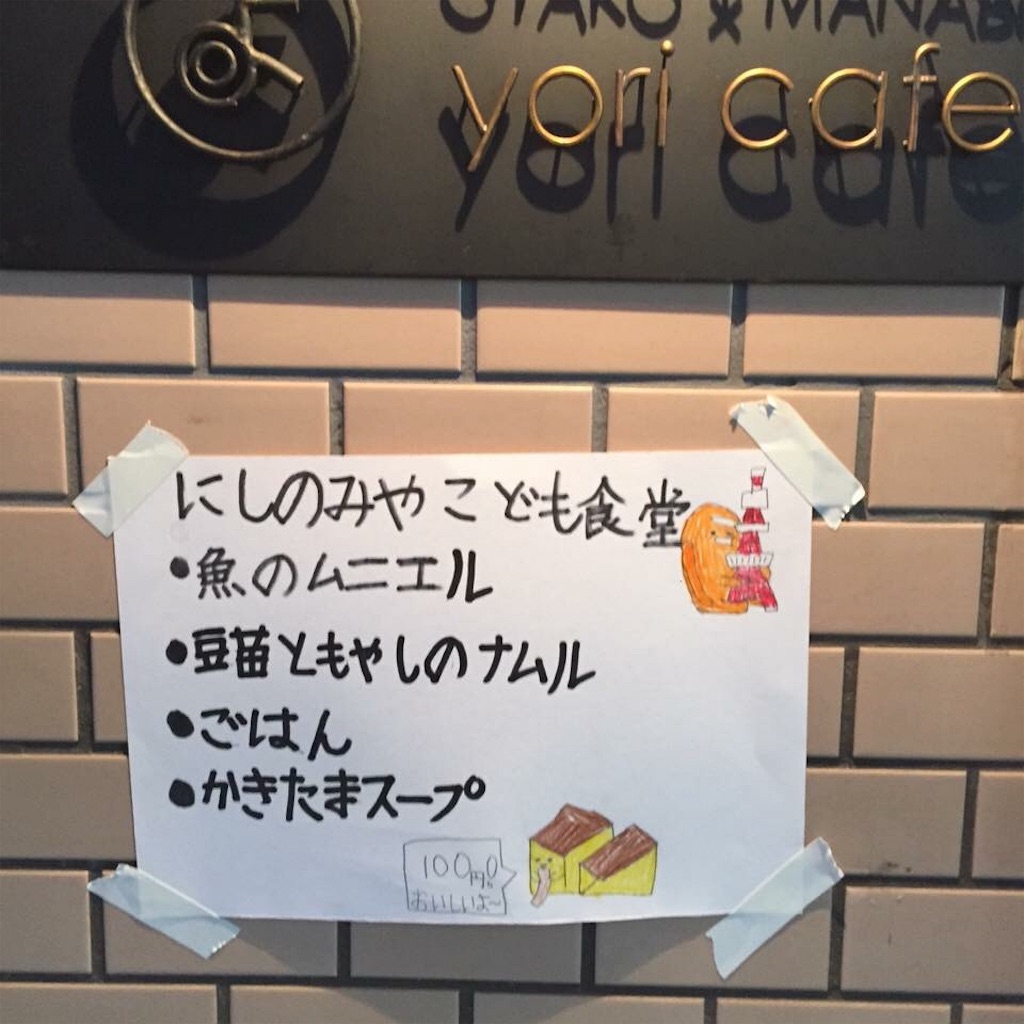 OTAKU × MANABI
yori cafe
にしのみやこども食堂
•魚のムニエル
•豆苗ともやしのナムル
•ごはん
•かきたまスープ
100円。
おいしいよ〜